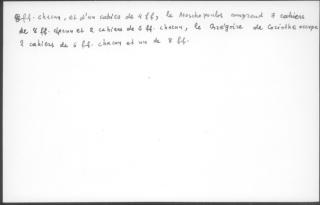 8 ff. chacun, et d'un cahier de 4 ff, le Moschopoulos comprend 7 cahiers
de 8 ff. chacun et 2 cahiers de 6 ff. chacun, le Grégoire de Corinthe occupe
2 cahiers de 6 ff. chacun et un de 8 ff.